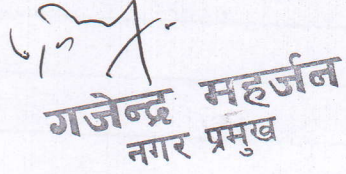 गजेन्द्र महर्जन
नगर प्रमुख